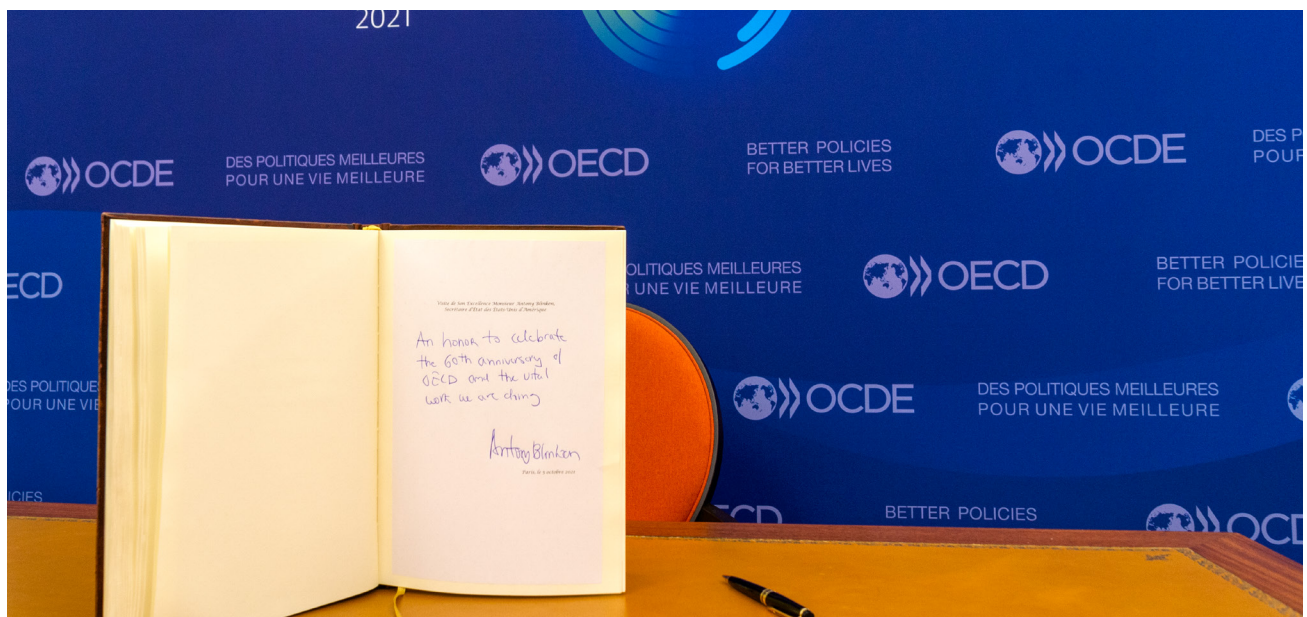 2021
OCDE
DES POLITIQUES MEILLEURES
POUR UNE VIE MEILLEURE
OECD
BETTER POLICIES
FOR BETTER LIVES
OCDE
DES P
POUR
ECD
OLITIQUES MEILLEURES
UNE VIE MEILLEURE
OECD
BETTER POLICIE
FOR BETTER LIVE
DES POLITIQUE
POUR UNE VIE
OCDE
DES POLITIQUES MEILLEURES
POUR UNE VIE MEILLEURE
ICIES
ECD
BETTER POLICIES
OCD
Visite de Son Excellence Monsieur Antony Blinken,
Secrétaire d'État des États-Unis d'Amérique
An honor to celebrate
the 60th anniversary of
OECD and the vital
work we are doing
Antony Blinken
Paris, le octobre 2021